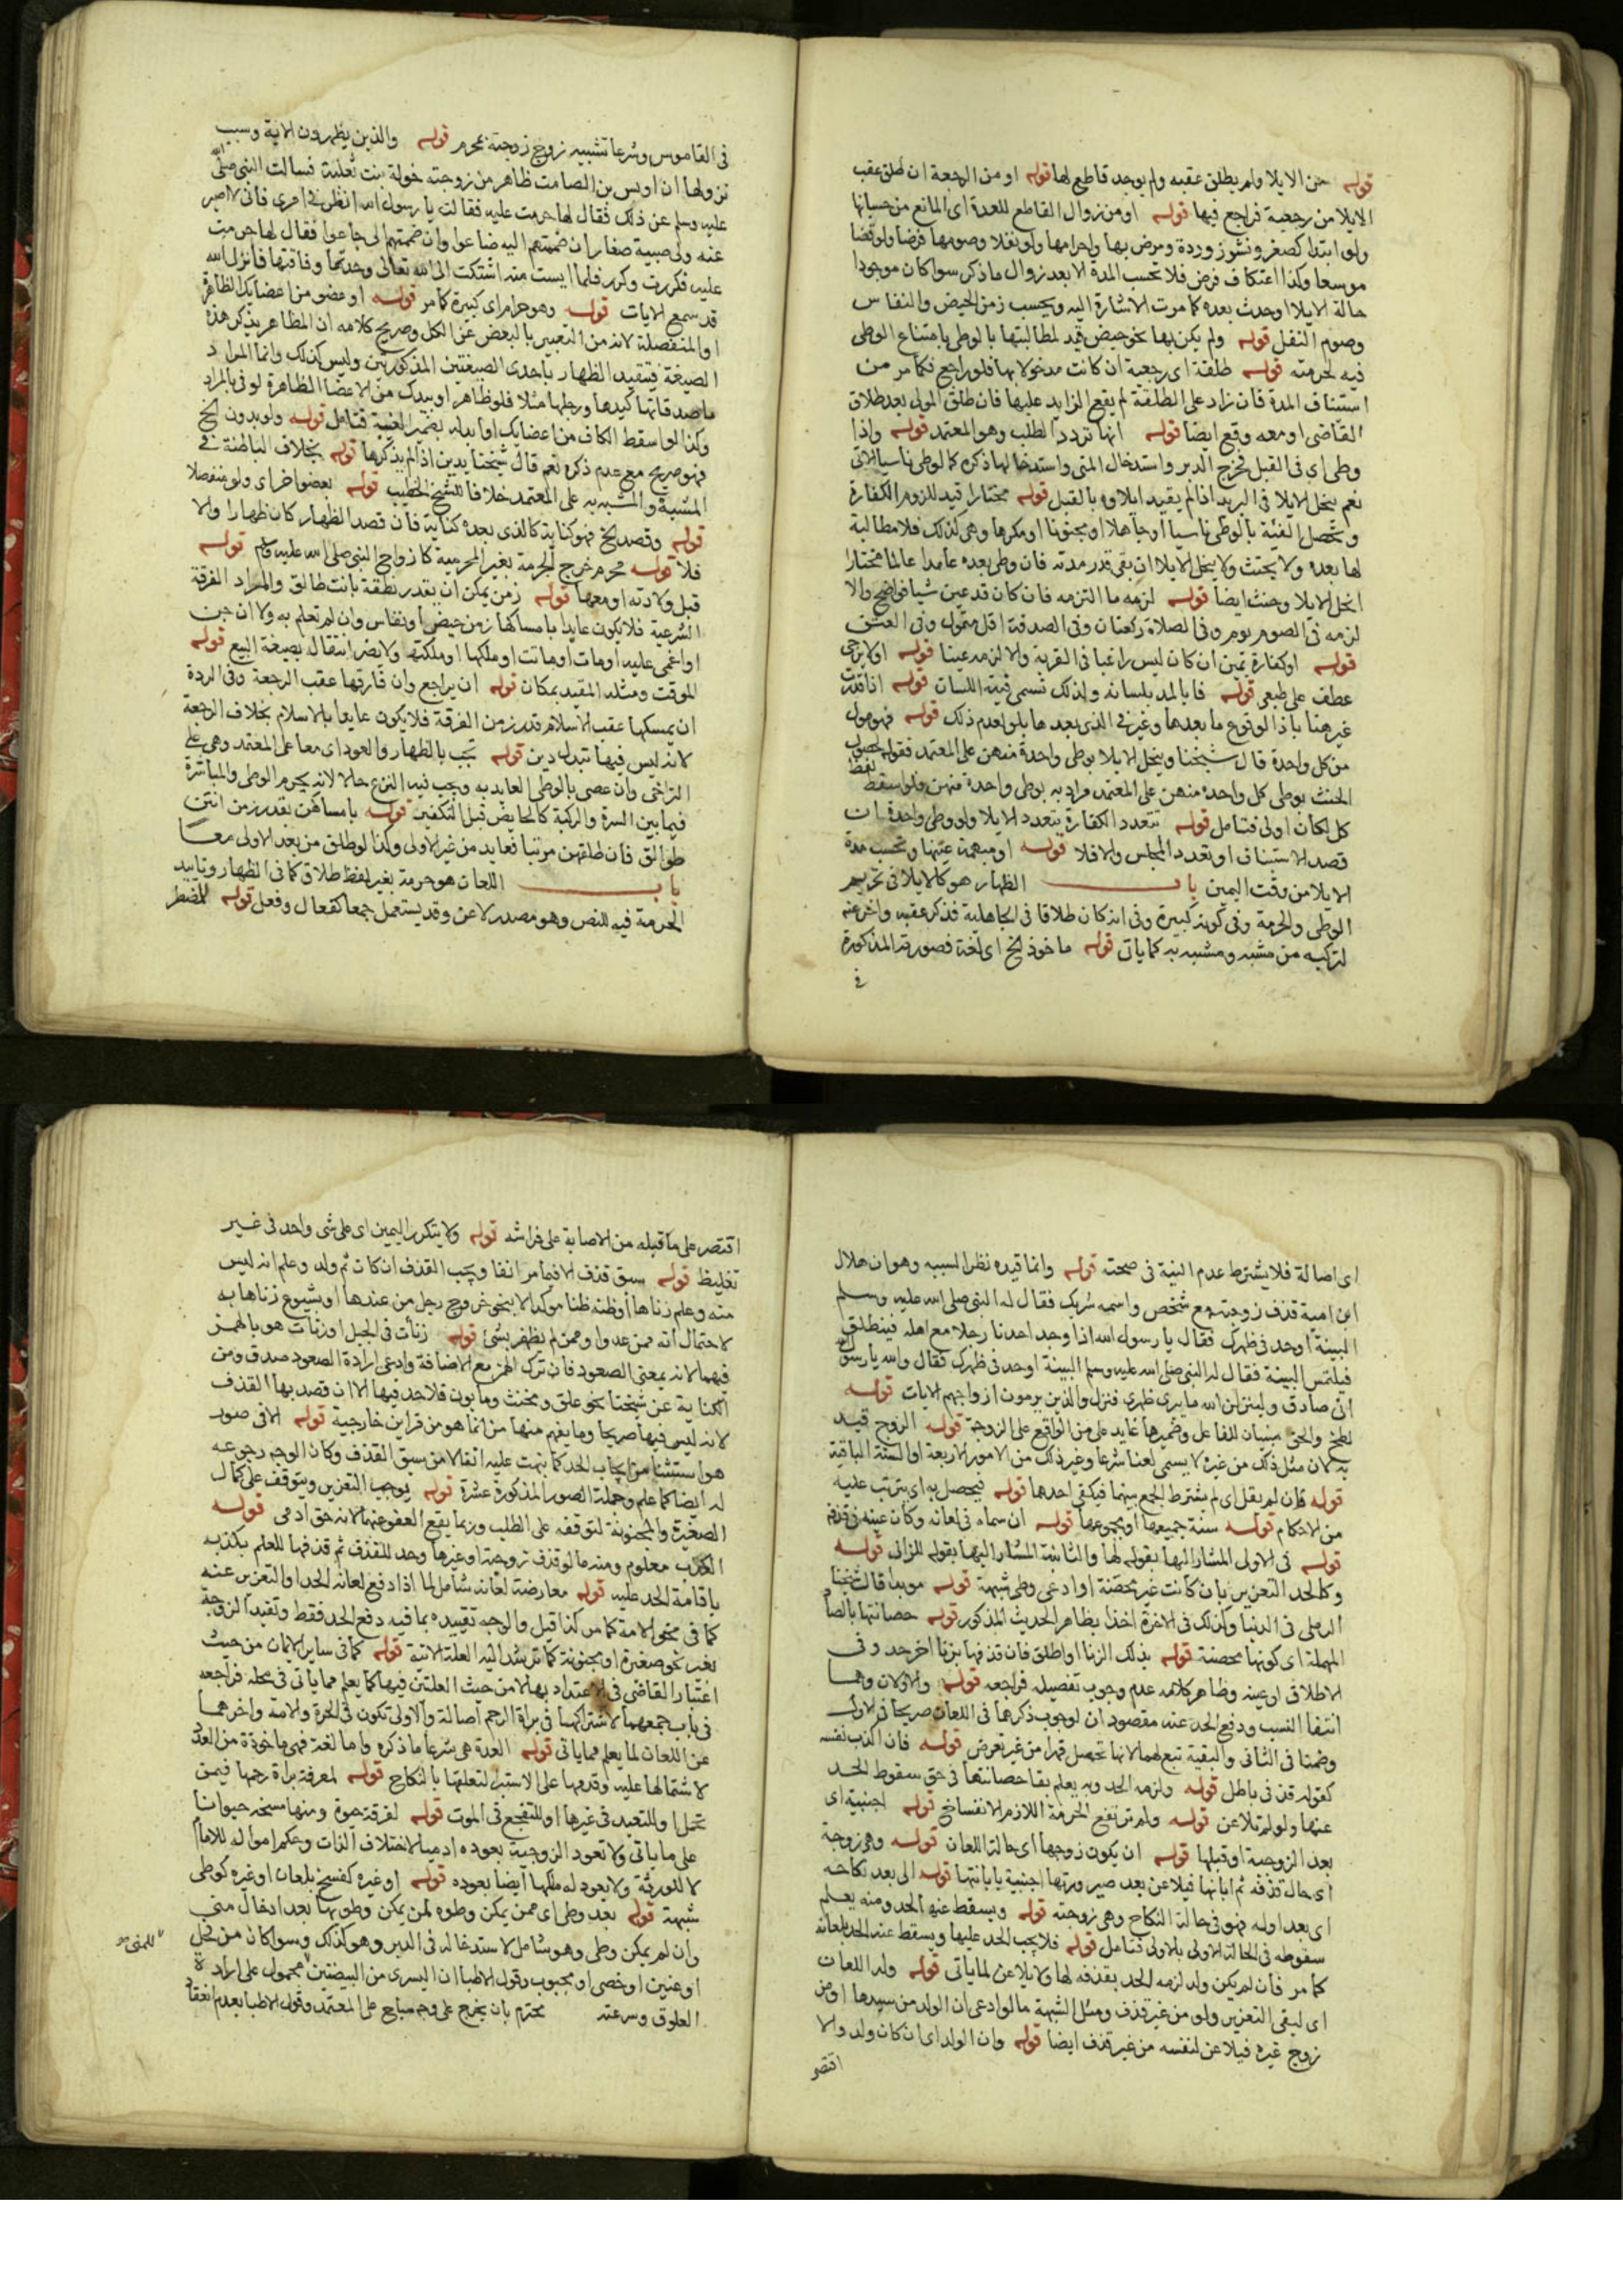 قوله حن الايلا ولم يطلق عقبه ولم يوجد قاطع لها قوله او من الرجعة ان طلق عقب
الايلا من رجعية فراجع فيها قوله او من زوال القاطع للعدة اى المانع من حسبانها
ولو ابتدا كصغر ونشوز وردة ومرض بها واحرامها ولو نفلا وصومها فرضا ولو قضا
موسعا وكذا اعتكاف فرض فلا تحسب المدة الا بعد زوال ما ذكر سوا كان موجودا
حالة الايلا او حدث بعده كما مرت الاشارة اليه ويحسب زمن الحيض والنفاس
وصوم النفل قوله ولم يكن بها نحو حيض قيد لمطالبتها بالوطى بامتناع الوطى
فيه لحرمته قوله طلقة اى رجعية ان كانت مدخولا بها فلو راجع فكما مر من
استئناف المدة فان زاد على الطلقة لم يقع الزايد عليها فان طلق المولى بعد طلاق
القاضى او معه وقع ايضا قوله انها تردد الطلب وهو المعتمد قوله واذا
وطى اى فى القبل فخرج الدبر واستدخال المنى واستدخالها ذكره كالوطى ناسيا الاتى
نعم ينحل الايلا فى الدبر اذا لم يقيد ايلاوه بالقبل قوله مختارا قيد للزوم الكفارة
وتحصل الفيئة بالوطى ناسيا او جاهلا او مجنونا او مكرها وهى كذلك فلا مطالبة
لها بعده ولا يحنث ولا ينحل الايلا ان بقى قدر مدته فان وطى بعده عامدا عالما مختارا
انحل الايلا وحنث ايضا قوله لزمه ما التزمه فان كان قد عين شيا فواضح والا
لزمه فى الصوم يوم وفى الصلاة ركعتان وفى الصدقة اقل متمول وفى العتق
قوله او كفارة يمين ان كان ليس راغبا فى القربة والا لزمه عينا قوله او لا يرجى
عطف على طبعى قوله فايا لمد بلسانه ولذلك تسمى فيئة اللسان قوله اذا قدرت
غير هنا باذا لوقوع ما بعدها وغير فى الذى بعدها بلو لعدم ذلك قوله فهو مول
من كل واحدة قال شيخنا وينحل الايلا بوطى واحدة منهن على المعتمد فقوله لحصول
الحنث بوطى كل واحدة منهن على المعتمد مراد به بوطى واحدة منهن ولو اسقط لفظ
كل لكان اولى فتامل قوله تتعدد الكفارة بتعدد الايلا ولو وطى واحدة ان
قصد الاستئناف او تعدد المجلس والا فلا قوله او مبهمة عينها وتحسب مدة
الايلا من وقت اليمين باب الظهار هو كالايلا فى تحريم
الوطى والحرمة وفى كونه كبيرة وفى انه كان طلاقا فى الجاهلية فذكر عقبه واخر عنه
لتركبه من مشبه ومشبه به كما ياتى قوله ماخوذ الخ اى لغة فصورته المذكورة
فى
فى القاموس وشرعا تشبيه زوج زوجته بمحرم قوله والذين يظهرون الاية وسبب
نزولها ان اوس بن الصامت ظاهر من زوجته خولة بنت ثعلبة فسالت النبى صلى الله
عليه وسلم عن ذلك فقال لها حرمت عليه فقالت يا رسول الله انظر فى امرى فانى لا اصبر
عنه ولى صبية صغار ان ضممتهم اليه ضاعوا وان ضممتهم الى جاعوا فقال لها حرمت
عليه فكررت وكرر فلما ايست منه اشتكت الى الله تعالى وحدتها وفاقتها فانزل الله
قد سمع الايات قوله وهو حرام اى كبيرة كما مر قوله او عضو من اعضايك الظاهرة
او المنفصلة لانه من التعبير بالبعض عن الكل وصريح كلامه ان المظاهر يذكر هذه
الصيغة فيتقيد الظهار باحدى الصيغتين المذكورتين وليس كذلك وانما المراد
ما صدقاتها كيدها ورجلها مثلا فلو ظاهر او بيدك من الاعضا الظاهرة لوفى بالمراد
وكذا لو اسقط الكاف من اعضايك او ابدله بضمير الغيبة فتامل قوله ولو بدون الخ
فهو صريح مع عدم ذكره نعم قال شيخنا يدين اذا لم يذكرها قوله بخلاف الباطنة فى
المشبه والمشبه به على المعتمد خلافا للشيخ الخطيب قوله بعضوا خر اى ولو منفصلا
قوله وقصد الخ فهو كناية كالذى بعده كناية فان قصد الظهار كان ظهارا والا
فلا قوله محرم خرج الحرمة بغير المحرمية كازواج النبى صلى الله عليه وسلم قوله
قبل ولادته او معها قوله زمن يمكن ان بقدر نطقه بانت طالق والمراد الفرقة
الشرعية فلا يكون عايدا بامساكها زمن حيض او نفاس وان لم تعلم به ولا ان جن
او اغمى عليه او مات او ماتت او ملكها او ملكته ولا يضر انتقاله بصيغة البيع قوله
الموقت ومثله المقيد بمكان قوله ان يراجع وان فارقها عقب الرجعة وفى الردة
ان يمسكها عقب الاسلام قدر زمن الفرقة فلا يكون عايدا بالاسلام بخلاف الرجعة
لانه ليس فيها تبدل دين قوله تجب بالظهار والعود اى معا على المعتمد وهى على
التراخى وان عصى بالوطى العايد به ويجب فيه النزع حالا لانه يحرم الوطى والمباشرة
فيما بين السرة والركبة كالحايض قبل التكفير قوله بامساكهن بقدر زمن انتن
طوالق فان طلقهن مرتبا فعايد من غير الاولى وكذا لو طلق من بعد الاولى معا
باب اللعان هو حرمة بغير لفظ طلاق كما فى الظهار وتاييد
الحرمة فيه للنص وهو مصدر لاعن وقد يستعمل جمعا كفعال وفعل قوله للمضطر
اى اصالة فلا يشترط عدم البينة فى صحته قوله وانما قيده نظرا لسببه وهو ان هلال
ابن امية قذف زوجته مع شخص واسمه شريك فقال له النبى صلى الله عليه وسلم
البينة او حد فى ظهرك فقال يا رسول الله اذا وجد احدنا رجلا مع اهله فينطلق
فيلتمس البينة فقال له النبى صلى الله عليه وسلم البينة او حد فى ظهرك فقال والله يا رسول الله
انى صادق ولينزلن الله ما يبرى ظهرى فنزل والذين يرمون ازواجهم الايات قوله
لطخ والحق مبنيان للفاعل وضميرها عايد على من الواقع على الزوجة قوله الزوج قيد
به لان مثل ذلك من غيره لا يسمى لعنا شرعا وغير ذلك من الامور الاربعة او الستة الباقية
قوله فان لم يقل اى لم يشترط الجمع بينهما فيكفى احدها قوله فيحصل به اى يترتب عليه
من الاحكام قوله ستة جميعها او مجموعها قوله ان سماه فى لعانه وكان عينه فى قذفه
قوله فى الاولى المشار اليها بقوله لها والثانية المشار اليها بقوله للزانى قوله
وكالحد التعزير بان كانت غير محصنة او ادعى وطى شبهة قوله موبدا قال شيخنا
الرملى فى الدنيا وكذلك فى الاخرة اخذا بظاهر الحديث المذكور قوله حصانتها بالصاد
المهملة اى كونها محصنة قوله بذلك الزنا او اطلق فان قذفها بزنا اخر حد وفى
الاطلاق او عينه وظاهر كلامه عدم وجوب تفصيله فراجعه قوله والاولان وهما
انتفا النسب ودفع الحد عنه مقصودان لوجوب ذكرهما فى اللعان صريحا فى الاول
وضمنا فى الثانى والبقية تبع لهما لانها تحصل قهرا من غير تعرض قوله فان اكذب نفسه
كقوله قذفى باطل قوله ولزمه الحد وبه يعلم بقا حصانتها فى حق سقوط الحد
عنها ولو لم تلاعن قوله ولم ترتفع الحرمة اللازم الانفساخ قوله اجنبية اى
بعد الزوجية او قبلها قوله ان يكون زوجها اى حالة اللعان قوله وهى زوجة
اى حال قذفه ثم ابانها فيلاعن بعد صيرورتها اجنبية بابانتها قوله الى بعد نكاحه
اى بعد اوله فهو فى حالة النكاح وهى زوجته قوله ويسقط عنها الحد ومنه يعلم
سقوطه فى الحالة الاولى بالاولى فتامل قوله فلا يجب الحد عليها ويسقط عنه الحد بلعانه
كما مر فان لم يكن ولد لزمه الحد بقذفه لها ولا يلاعن لما ياتى قوله ولد اللعان
اى لبقى التعزير ولو من غير قذف ومثل الشبهة ما لو ادعى ان الولد من سيدها او من
زوج غيره فيلاعن لنفسه من غير قذف ايضا قوله وان الولد اى ان كان ولد والا
اقتصر
اقتصر على ما قبله من الاصابة على فراشه قوله ولا يتكرر اليمين اى على شى واحد فى غير
تغليظ قوله سبق قذف الا فيما مر انفا ويجب القذف ان كان ثم ولد وعلم انه ليس
منه وعلم زناها او ظنه ظنا موكدا لا بنحو خروج رجل من عندها او بشيوع زناها به
لاحتمال انه ممن عدوا وممن لم يظفر بشئ قوله زنات فى الجبل او زنات هو بالهمز
فيهما لانه بمعنى الصعود فان ترك الهمز مع الاضافة وادعى ارادة الصعود صدق ومن
الكناية عن شيخنا نحو علق ومخنث ومابون فلا حد فيها الا ان قصد بها القذف
لانه ليس فيها صريحا وما يفهم منها من انما هو من قراين خارجية قوله الا فى صور
هو استثنا من ايجاب الحد كما نبهت عليه انفا لا من سبق القذف وكان الوجه رجوعه
له ايضا كما علم وجملة الصور المذكورة عشرة قوله يوجب التعزير ويتوقف على كمال
الصغيرة والمجنونة لتوقفه على الطلب وربما يقع العفو عنهما لانه حق ادمى قوله
الكذب معلوم ومنه ما لو قذف زوجته او غيرها وحد للقذف ثم قذفها للعلم بكذبه
باقامة الحد عليه قوله معارضة لعانه شامل لما اذا دفع لعانه الحد او التعزير عنه
كما فى نحو الامة كما مر كذا قيل والوجه تقييده بما فيه دفع الحد فقط وتقيد الزوجة
بغير نحو صغيرة او مجنونة كما ترشد اليه العلة الاتية قوله كما فى ساير الايمان من حيث
اعتبار القاضى فى الاعتداد بها لا من حيث العلتين فيها كما يعلم مما ياتى فى محله فراجعه
فى باب جمعهما لاشتراكهما فى براة الرحم اصالة والاولى تكون فى الحرة والامة واخرهما
عن اللعان لما يعلم مما ياتى قوله العدة هى شرعا ما ذكره واما لغة فهى ماخوذة من العدد
لاشتمالها عليه وقدمها على الاستبرا لتعلقها بالنكاح قوله لمعرفة براة رحمها فيمن
تحمل او للتعبد فى غيرها او للتفجع فى الموت قوله لفرقة حيوة ومنها مسخه حيوانا
على ما ياتى ولا تعود الزوجية بعوده ادميا لاختلاف الذات وحكم امواله للامام
لا للورثة ولا يعود له ملكها ايضا بعوده قوله او غيره كفسخ بلعان او غيره كوطى
شبهة قوله بعد وطى اى ممن يمكن وطوه لمن يمكن وطوها بعد ادخال منى
وان لم يمكن وطى وهو شامل لاستدخاله فى الدبر وهو كذلك وسوا كان من فحل
او عنين او خصى او مجبوب وقول الاطبا ان اليسرى من البيضتين محمول على ارادة
العلوق وسرعته محترم بان يخرج على وجه مباح على المعتمد وقول الاطبا بعدم انعقاد
للمنى